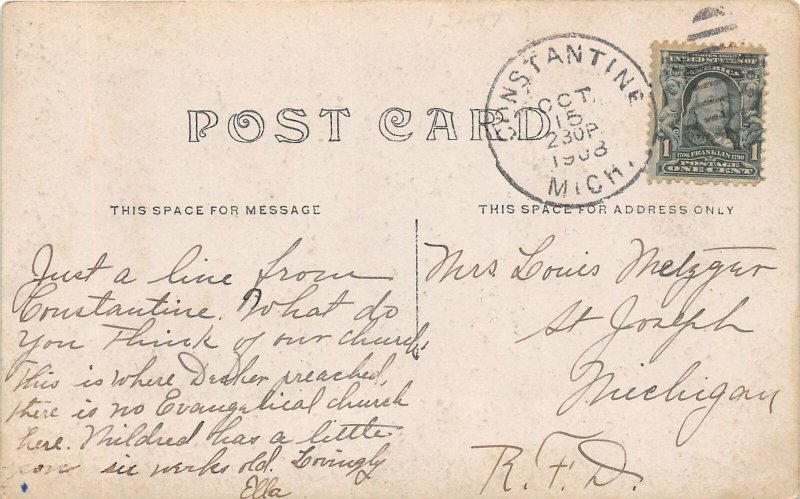 POST CARD
CONSTANTINE
OCT.
15
230P
1908
MICH.
UNITED STATES OF
AMERICA
1 FRANKLIN 1790 1
POSTAGE
ONE CENT
THIS SPACE FOR MESSAGE
THIS SPACE FOR ADDRESS ONLY
Just a line from
Constantine. What do
you think of our church,
This is where preached,
there is no Evangelical church
here. Mildred has a little
son six weeks old. Lovingly
Ella
Mrs Louis Metzger
St Joseph
Michigan
R. F. D.